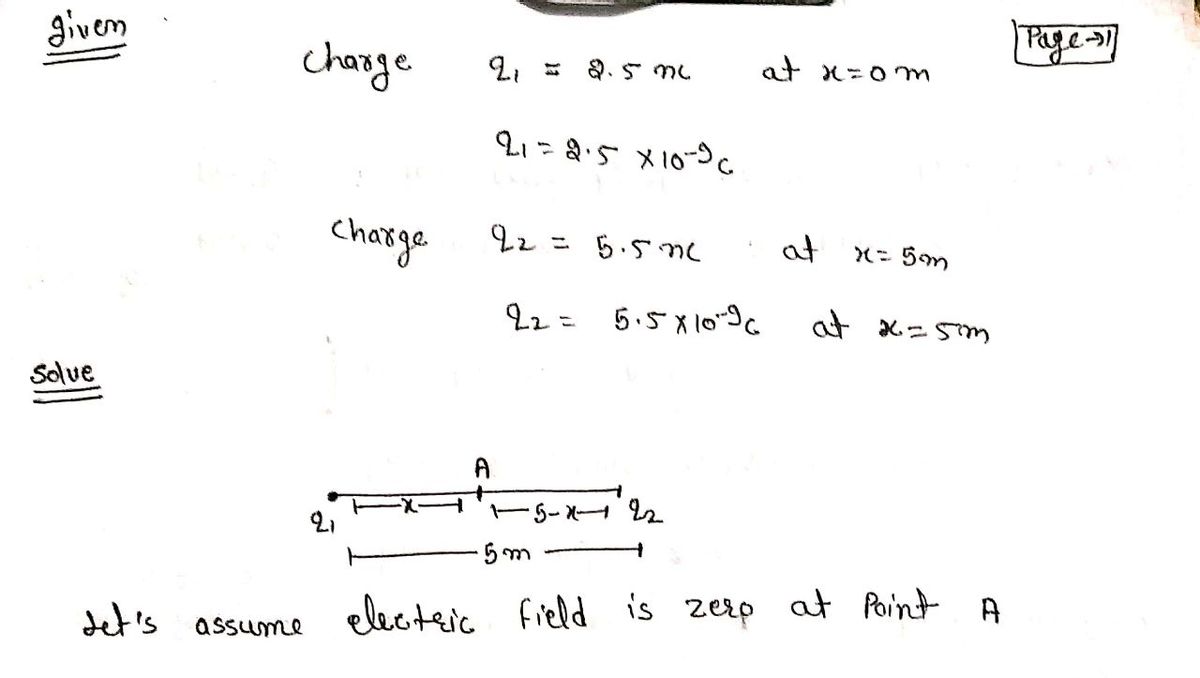 given
Page→1
Charge q₁ = 2.5 nc at x=0m
q₁ = 2.5 ×10⁻⁹c
Charge q₂ = 5.5 nc at x=5m
q₂ = 5.5×10⁻⁹c at x=5m
Solve
A
q₁ x 5-x q₂
5m
Let's assume electric field is zero at Point A